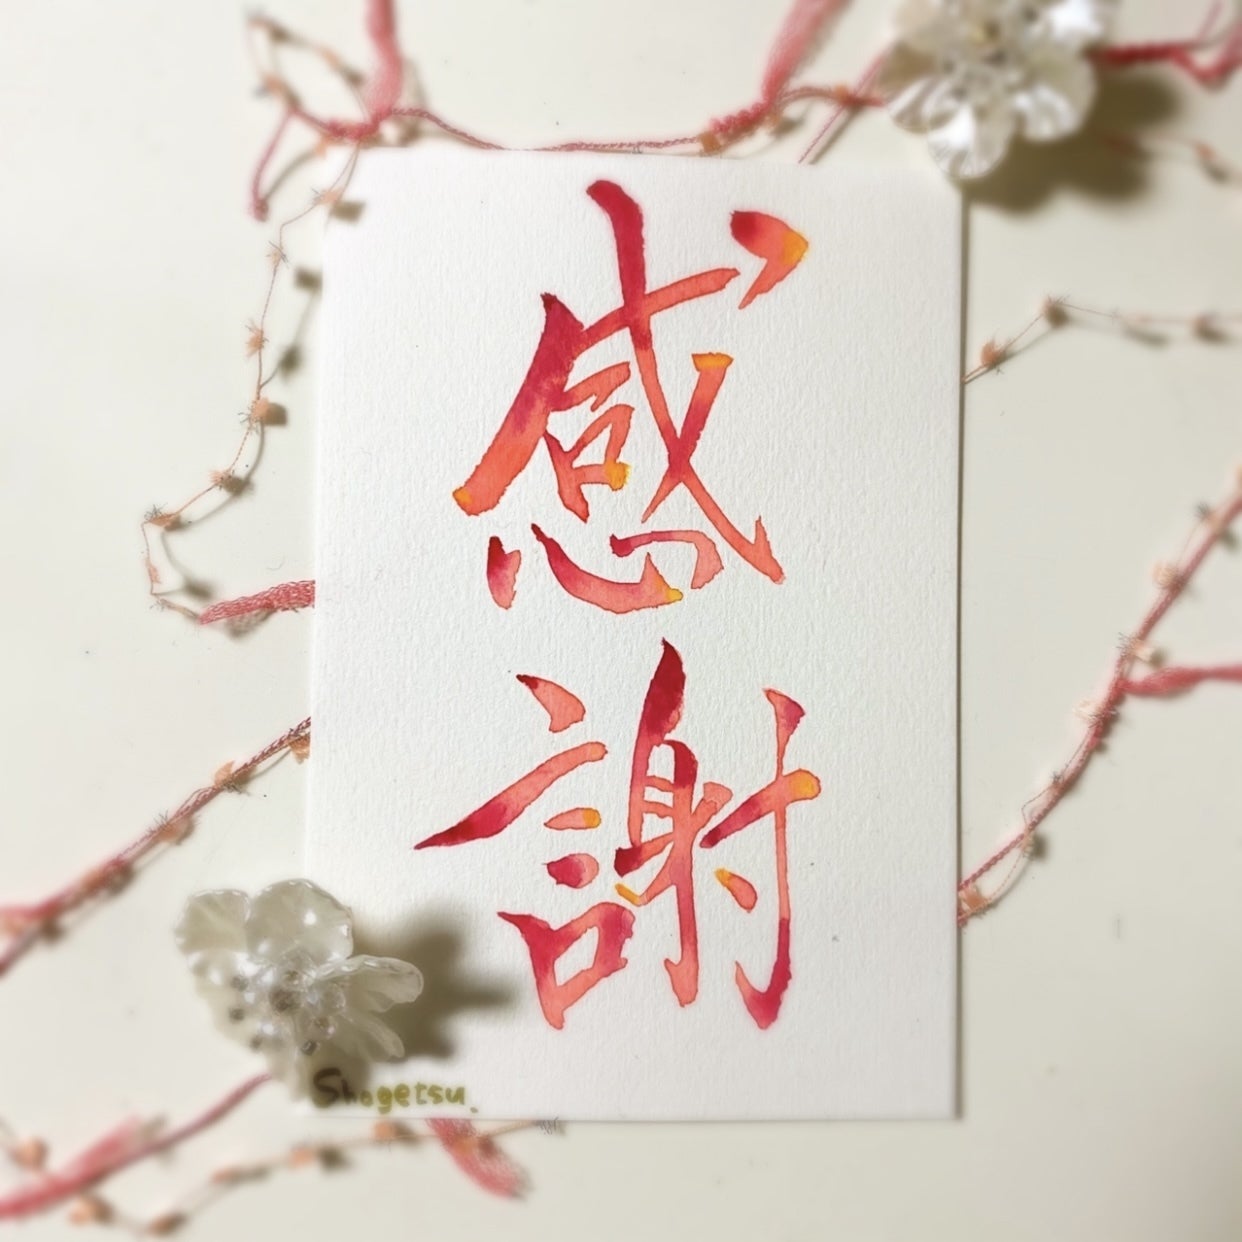 感謝
Shogetsu.